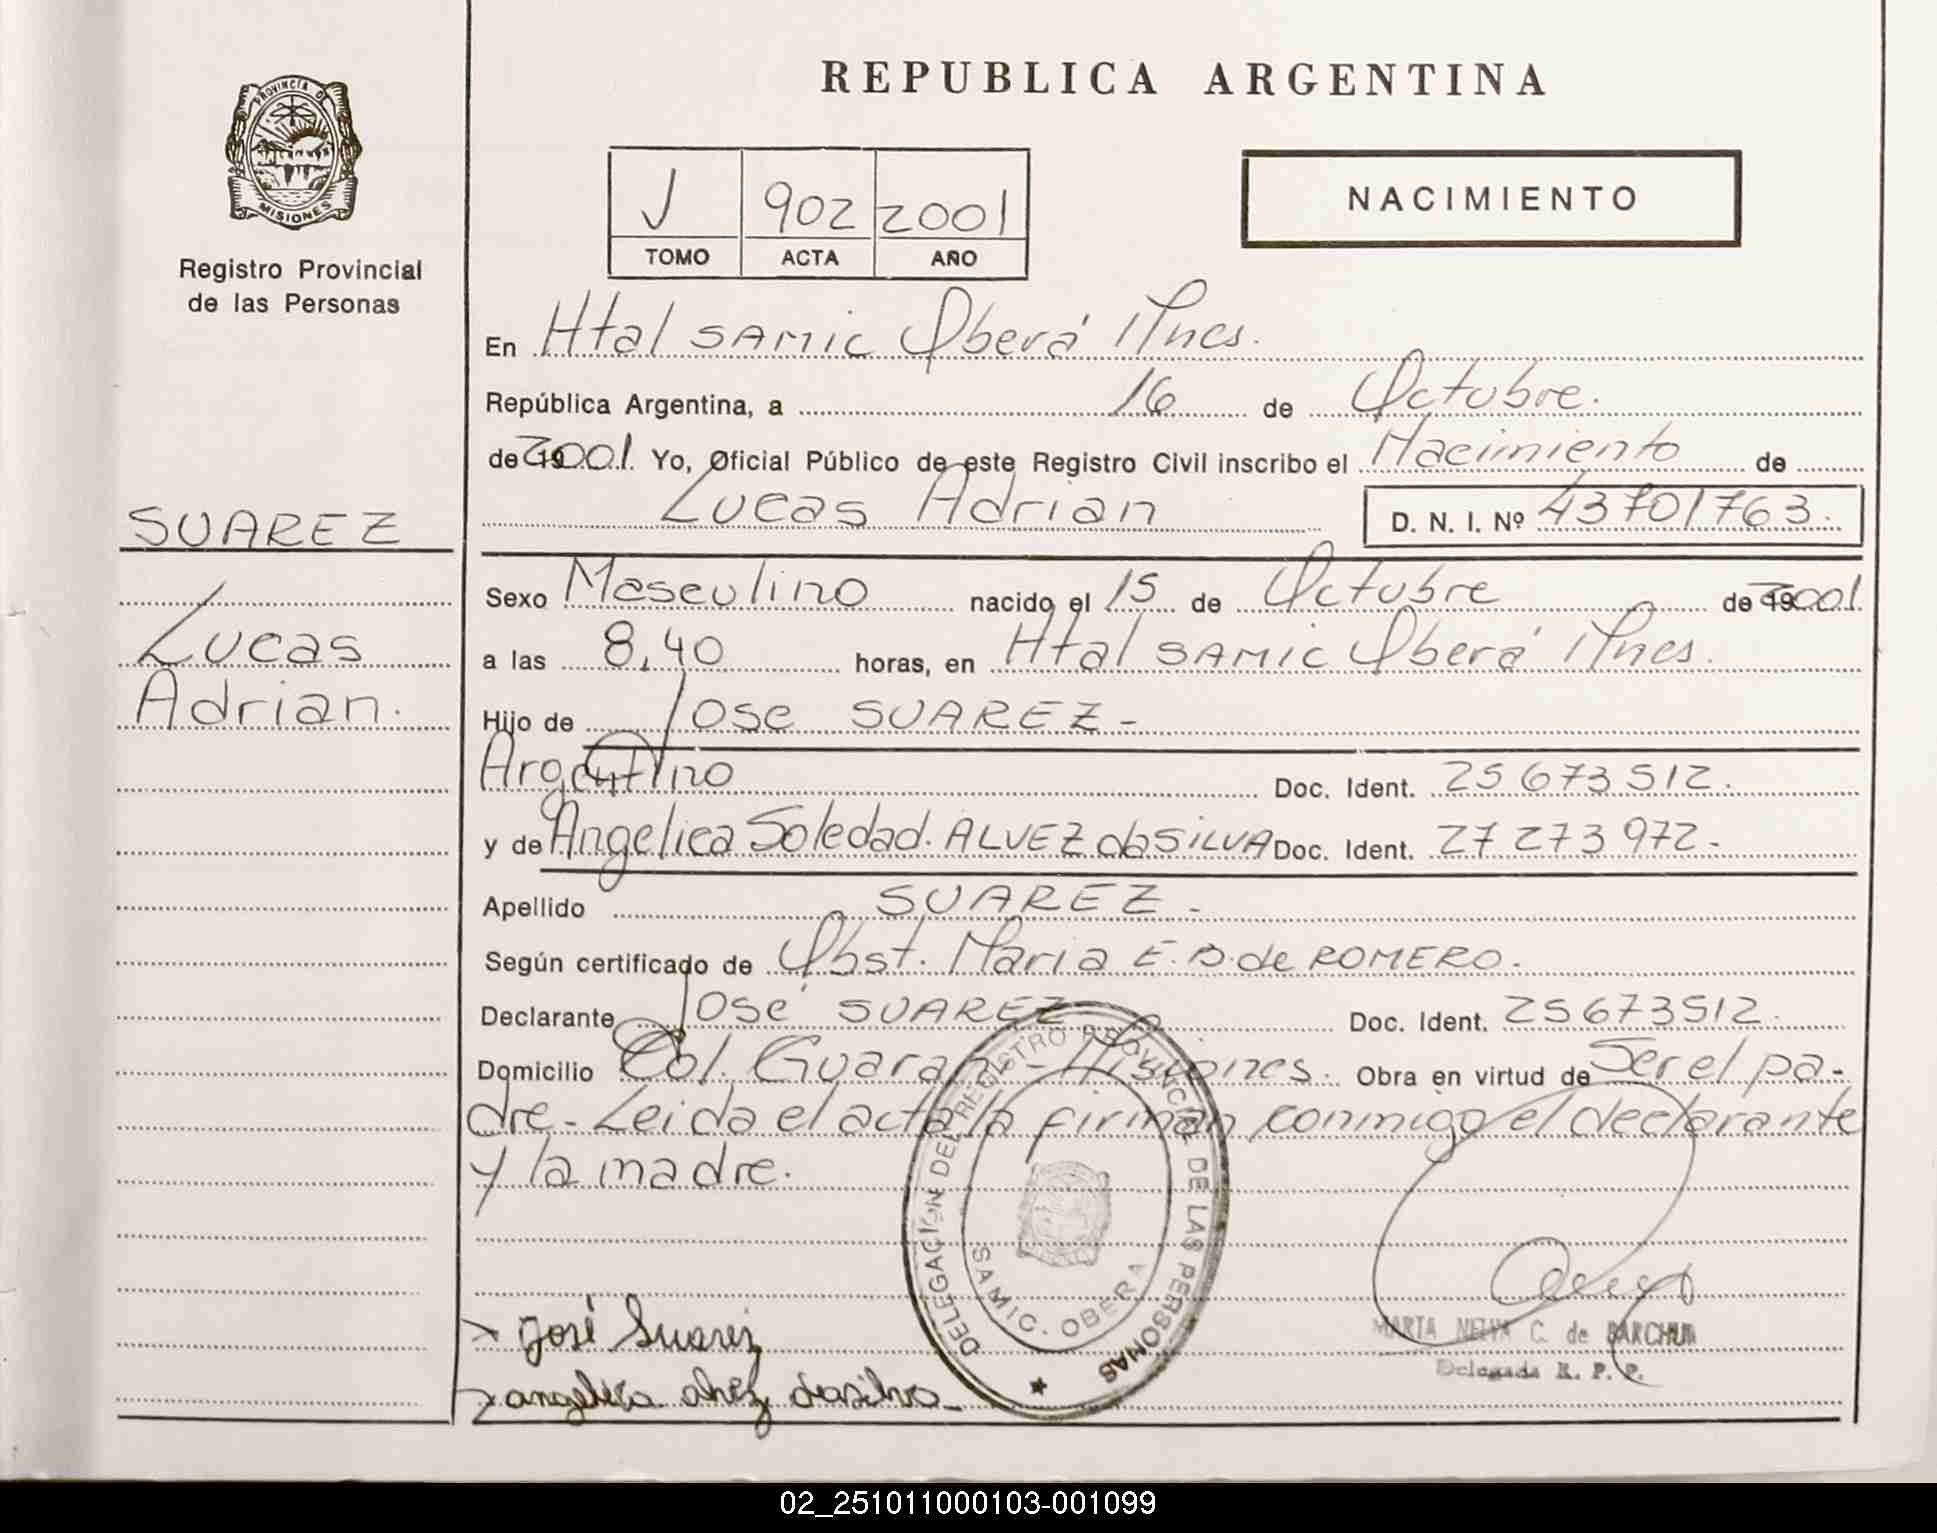 PROVINCIA DE
MISIONES
Registro Provincial
de las Personas
SUAREZ
Lucas
Adrian.
REPUBLICA ARGENTINA
J 902 2001
TOMO ACTA AÑO
NACIMIENTO
En Htal SAMIC Oberá Mnes.
República Argentina, a 16 de Octubre.
de 2001. Yo, Oficial Público de este Registro Civil inscribo el Nacimiento de
Lucas Adrian D. N. I. Nº 43701763.
Sexo Masculino nacido el 15 de Octubre de 2001.
a las 8,40 horas, en Htal SAMIC Oberá Mnes.
Hijo de Jose SUAREZ-
Argentino Doc. Ident. 25673512.
y de Angelica Soledad. ALVEZ da SILVA Doc. Ident. 27273972.-
Apellido SUAREZ.-
Según certificado de Obst. Maria E. B. de ROMERO.
Declarante José SUAREZ Doc. Ident. 25673512.
Domicilio Col. Guarani-Misiones. Obra en virtud de Ser el pa-
dre.- Leida el acta la firman conmigo el declarante
y la madre.
DELEGACION DEL REGISTRO PROVINCIAL DE LAS PERSONAS
SAMIC. OBERA
José Suarez
angelica alvez dasilva
MARTA NELVA C. de BARCHUK
Delegada R. P. P.
02_251011000103-001099